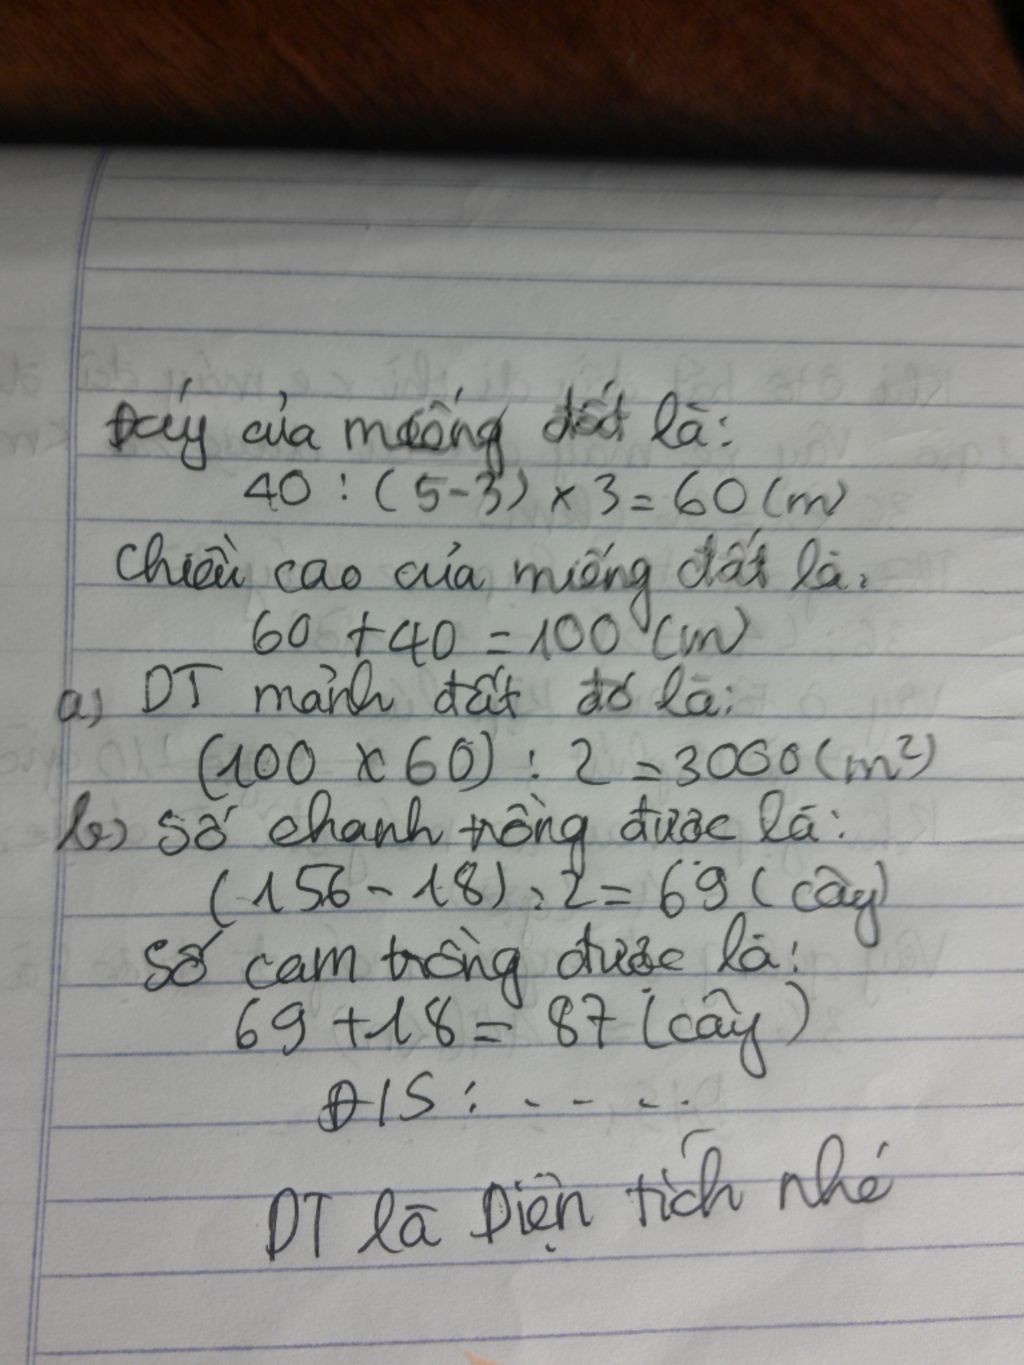 Đáy của miếng đất là:
40 : (5-3) x 3 = 60 (m)
Chiều cao của miếng đất là:
60 + 40 = 100 (m)
a) DT mảnh đất đó là:
(100 x 60) : 2 = 3000 (m²)
b) Số chanh trồng được là:
(156 - 18) : 2 = 69 (cây)
Số cam trồng được là:
69 + 18 = 87 (cây)
Đ/S : - - - - -
DT là Diện tích nhé